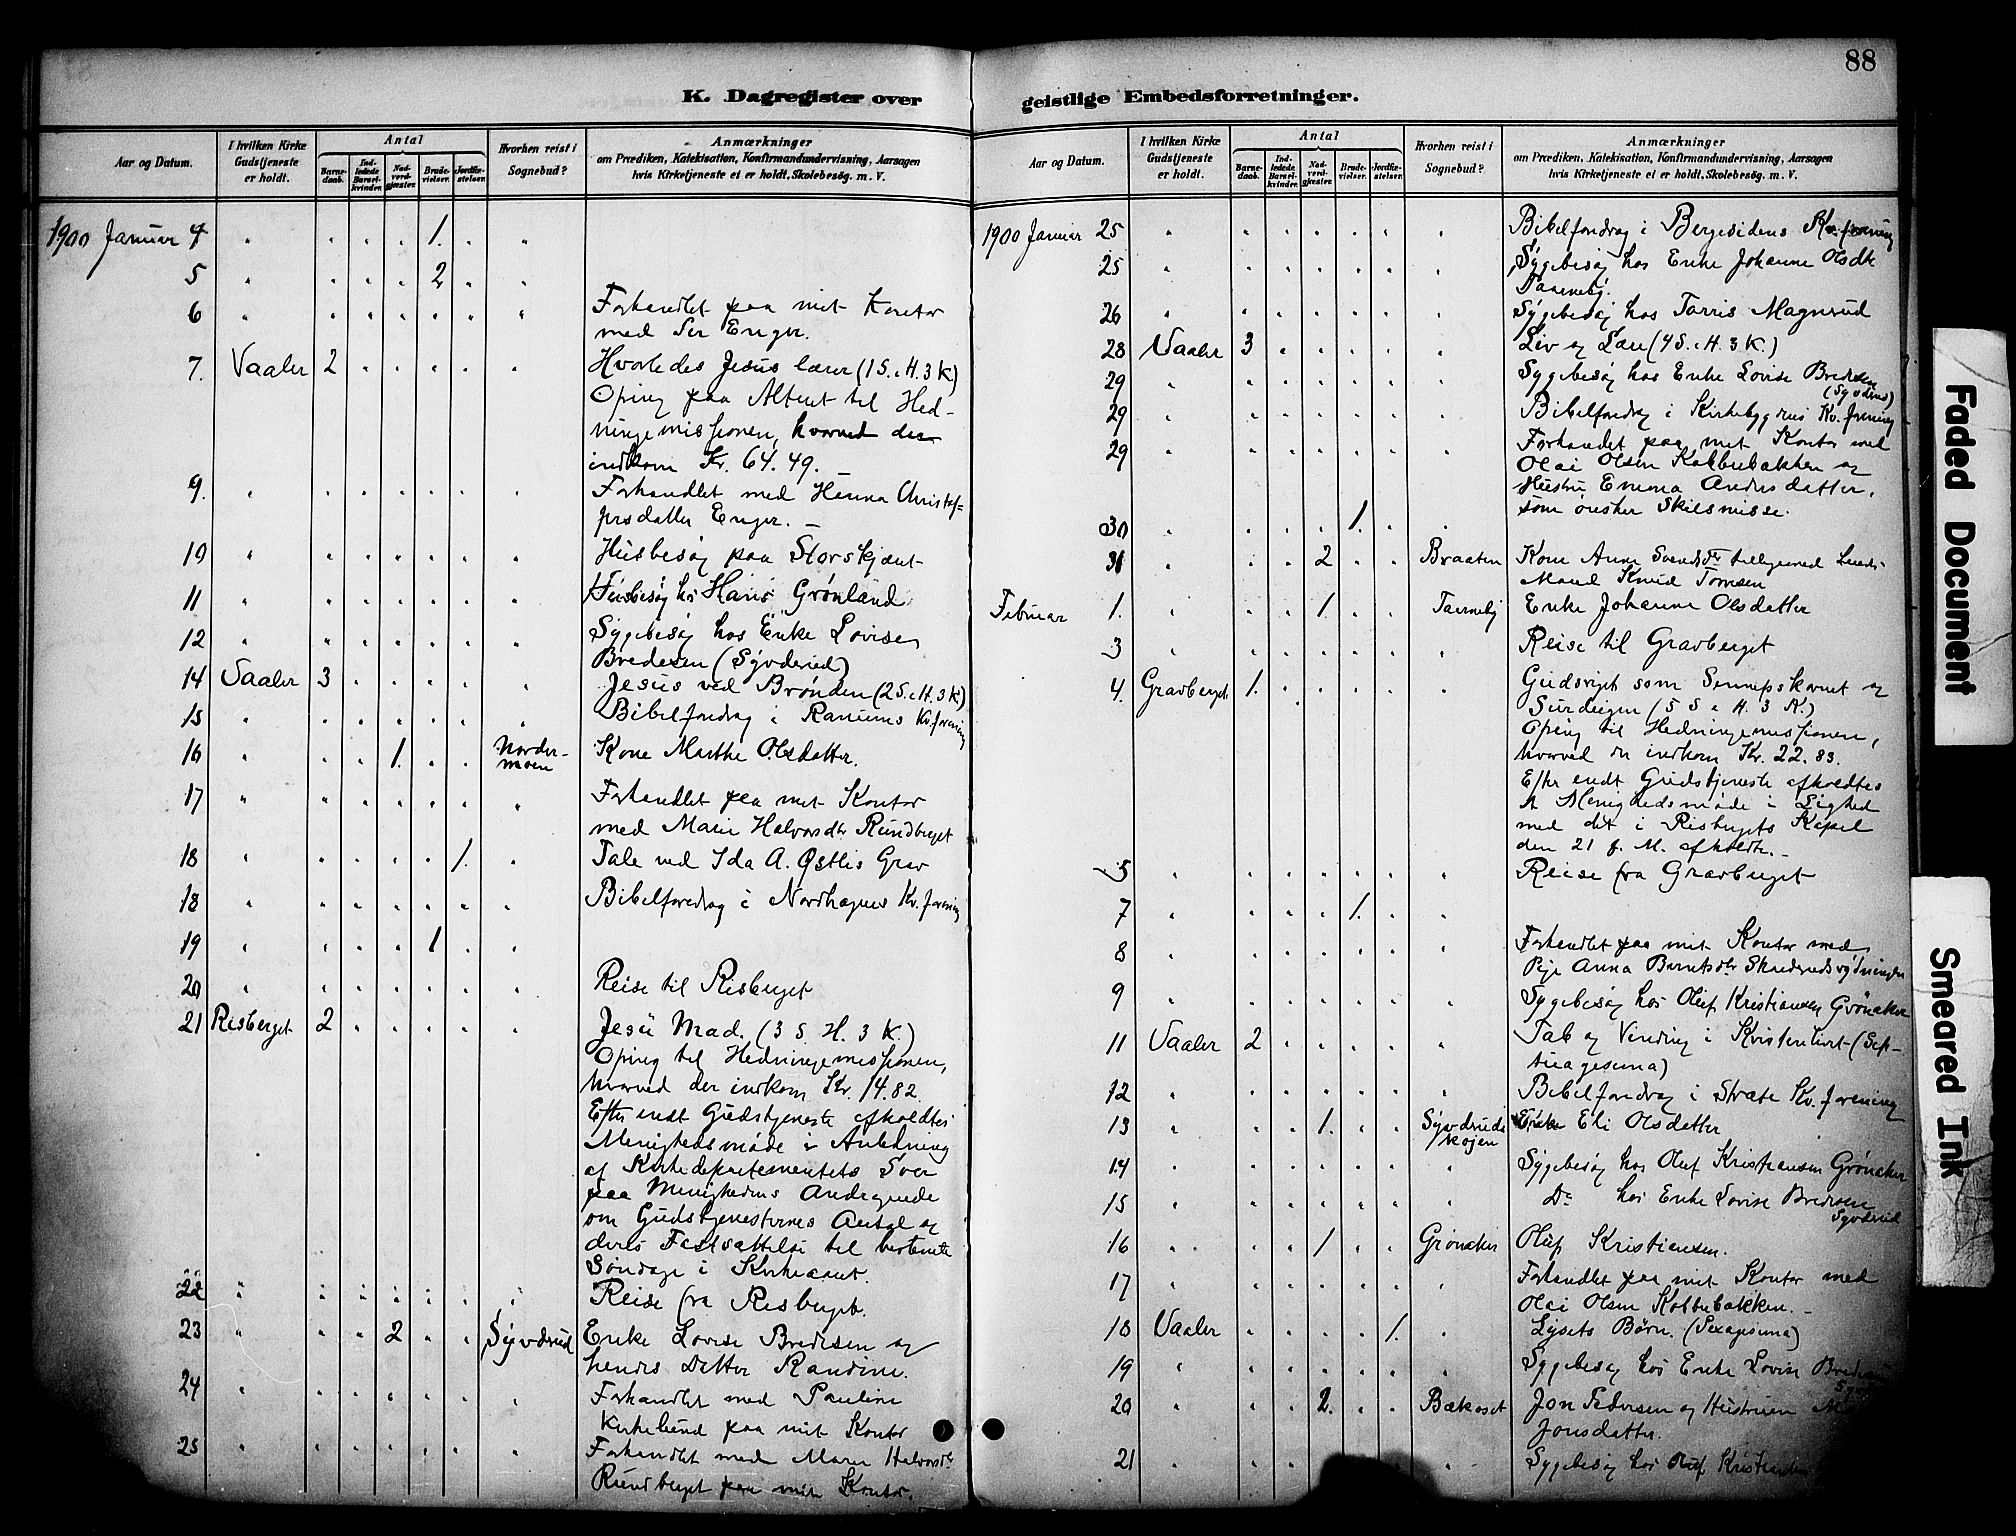 88
K. Dagregister over
Aar og Datum.
I hvilken Kirke Gudstjeneste er holdt.
Antal
Barnedaab.
Indledede Barselkvinder.
Nadverdgjæster.
Brudevielser.
Jordfæstelser.
Hvorhen reist i Sognebud?
Anmærkninger
om Prædiken, Katekisation, Konfirmandundervisning, Aarsagen
hvis Kirketjeneste ei er holdt, Skolebesøg. m. V.
1900 Januar 4 1.
5 2
6 Forhandlet paa mit Kontor
med Enger.
7. Vaaler 2 Hvorledes Jesus lærer (1 S. e. H. 3 K)
Opring paa Alteret til Hed-
ningemissionen, hvorved der
indkom Kr. 64.49.
9. Forhandlet med Hanna Christof-
fersdatter Enger. –
10 Husbesøg paa Storskjæret
11 Husbesøg hos Hans Grønland
12 Sygebesøg hos Enke Lovise
Bredesen (Syvderud)
14 Vaaler 3 Jesus ved Brønden (2 S. e. H. 3 K)
15 Bibelforedrag i Ranums Kv. forening
16 1. Norder-
moen Kone Marthe Olsdatter.
17 Forhandlet paa mit Kontor
med Marie Halvorsdtr Rundberget
18 1. Tale ved Ida A. Østlis Grav
18 Bibelforedrag i Nordhagens Kv. forening
19 1
20 Reise til Risberget
21 Risberget 2 Jesu Mad. (3 S. H. 3 K.)
Opring til Hedningemissionen,
hvorved der indkom Kr. 14.82.
Efter endt Gudstjeneste afholdtes
Menighedsmøde i Anledning
af Kirkedepartementets Svar
paa Menighedens Andragende
om Gudstjenesternes Antal og
deres Fastsættelse til bestemte
Søndage i Kirkeaaret.
22 Reise fra Risberget.
23 2 Syvdrud Enke Lovise Bredesen og
hendes Datter Randine.
24 Forhandlet med Pauline
Kirkelund paa mit Kontor
25 Forhandlet med Maren Halvorsdtr
Rundberget paa mit Kontor.
geistlige Embedsforretninger.
Aar og Datum.
I hvilken Kirke Gudstjeneste er holdt.
Antal
Barnedaab.
Indledede Barselkvinder.
Nadverdgjæster.
Brudevielser.
Jordfæstelser.
Hvorhen reist i Sognebud?
Anmærkninger
om Prædiken, Katekisation, Konfirmandundervisning, Aarsagen
hvis Kirketjeneste ei er holdt, Skolebesøg. m. V.
1900 Januar 25 Bibelforedrag i Bergesidens Kv. forening
25 Sygebesøg hos Enke Johanne Olsdtr
Taarneby.
26 Sygebesøg hos Tarris Magnrud
28 Vaaler 3 Liv og Lære (4 S. e. H. 3 K.)
29 Sygebesøg hos Enke Lovise Bredesen
(Syvdrud)
29 Bibelforedrag i Kirkebygdens Kv. forening
29 Forhandlet paa mit Kontor med
Olai Olsen Kobbebakken og
Hustru Emma Andersdatter,
som ønsker Skilsmisse.
30 1.
31 2 Braaten Kone Anne Svendsdtr tilligemed hendes
Mand Knud Tomsen
Februar 1. 1. Taarneby Enke Johanne Olsdatter
3 Reise til Gravberget
4. Gravberget 1. Gudsriget som Sennepskornet og
Surdeigen (5 S e H. 3 K.)
Opring til Hedningemissionen,
hvorved der indkom Kr. 22.83.
Efter endt Gudstjeneste afholdtes
et Menighedsmøde i Lighed
med det i Risbergets Kapel
den 21 f. M. afholdte. –
5 Reise fra Gravberget
7 1.
8 Forhandlet paa mit Kontor med
Pige Anna Berntsdtr
9 Sygebesøg hos Oluf Kristiansen Grønaker
11 Vaaler 2 Tab og Vinding i Kristenlivet (Sep-
tuagesima)
12 Bibelforedrag i Strate Kv. forening
13 1. Syvdruds
skojen Enke Eli Olsdatter
14 Sygebesøg hos Oluf Kristiansen Grønaker
15 Do hos Enke Lovise Bredesen
Syvdrud
16 1 Grønaker Oluf Kristiansen.
17 Forhandlet paa mit Kontor med
Olai Olsen Kobbebakken. –
18 Vaaler 1. Lysets Børn. (Sexagesima)
19 Sygebesøg hos Enke Lovise
20 2. Bækaset Jon Pedersen og Hustruen
Jonsdatter.
21 Sygebesøg hos Oluf Kristiansen
Faded Document
Smeared Ink